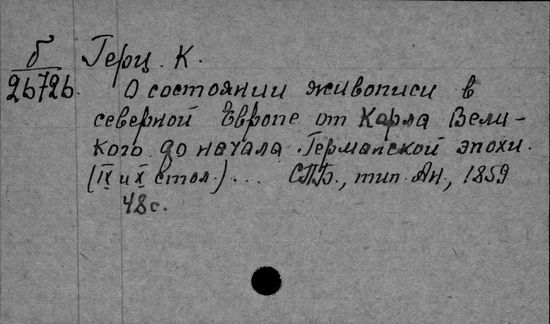 б Герц. К.
26726. О состоянии живописи в
северной Европе от Карла Вели-
кого до начала Германской эпохи.
(IX и X стол.)... СПБ., тип. Ан., 1859
48 с.